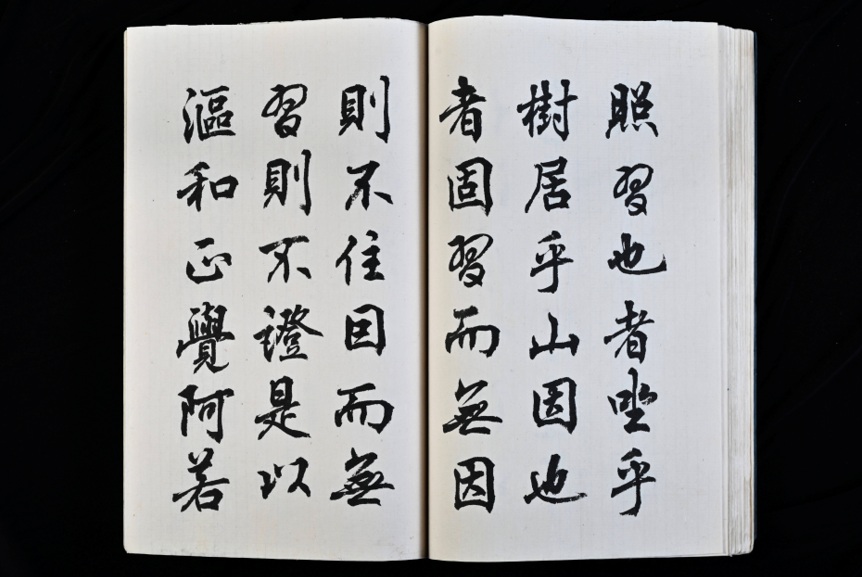 照習也者坐乎
樹居乎山因也
者固習而無因
則不住因而無
習則不證是以
漚和正覺阿若